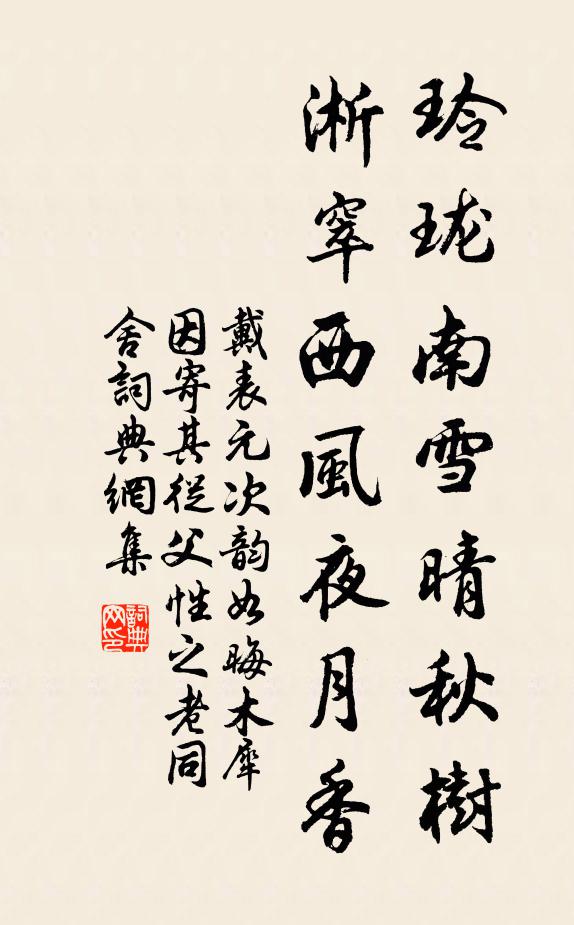 玲瓏南雪晴秋樹
淅窣西風夜月香
戴表元次韵如晦木犀
因寄其從父性之老同
舍詞典網集
詞典
网印